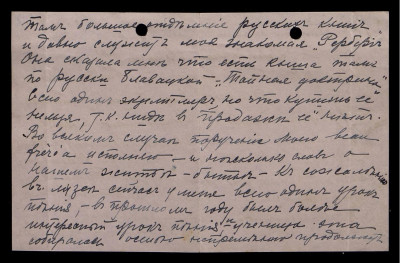 Тамъ большое отдѣленіе русскихъ книгъ
и давно служитъ моя знакомая „Рербергъ"
Она сказала мнѣ что есть книга тамъ
по русски Блавацкой „Тайная доктрина"
всего одинъ экземпляръ но что купить её
нельзя, т.к. нѣтъ в продажи её книгъ.
Во всякомъ случаѣ порученіе моего beau
frère'a исполню — и нѣсколько словъ о
нашемъ житьѣ - бытьѣ - Къ сожалѣнію
въ музеѣ сейчасъ у меня всего одинъ урокъ
пѣнія, - въ прошломъ году былъ болѣе
интересный урокъ пѣнія и ученица - она
собиралась осенью непремѣнно продолжать